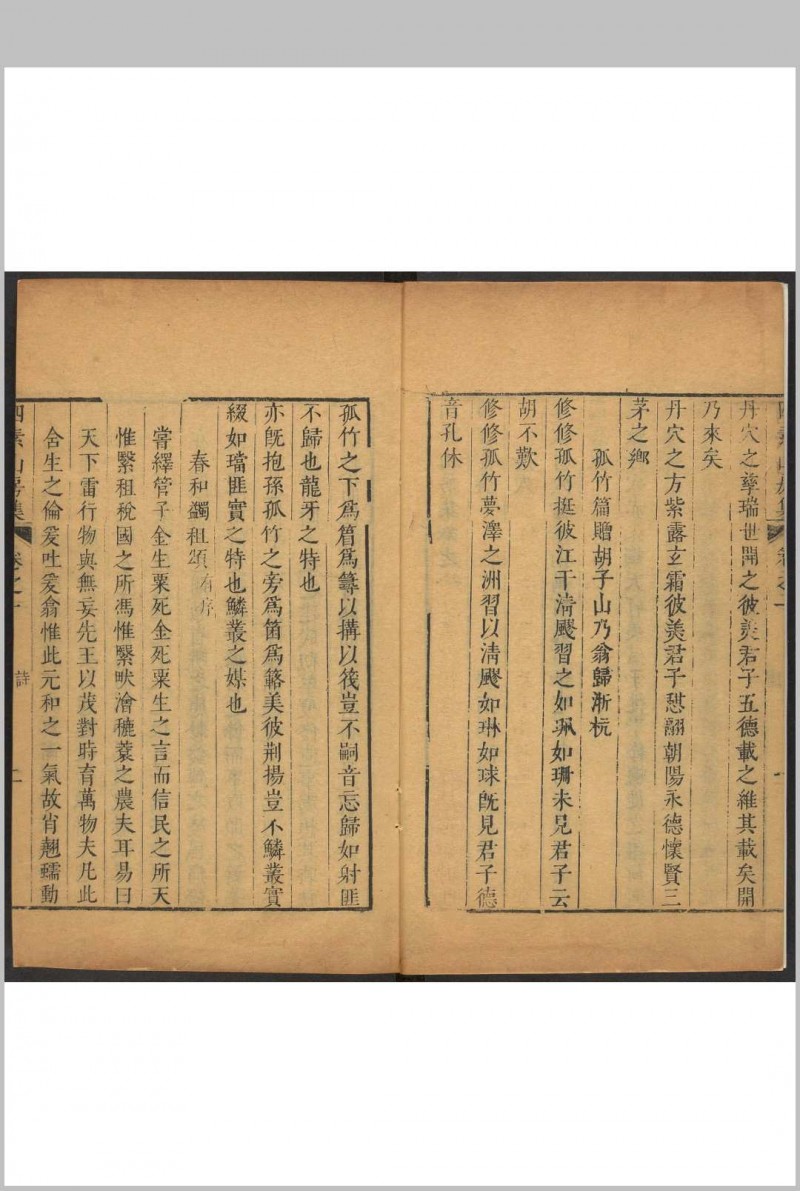 丹穴之㜸瑞世開之彼美君子五德載之維其載矣開
乃來矣
丹穴之方紫露玄霜彼美君子翽朝陽永德懷賢三
茅之鄉
孤竹篇贈胡子山乃翁歸浙杭
修修孤竹挺彼江干淸颸習之如珮如珊未見君子云
胡不歎
修修孤竹夢澤之洲習以淸颸如琳如球旣見君子德
音孔休
孤竹之下爲篬爲篿以搆以筏豈不嗣音忘歸如射匪
不歸也龍牙之特也
亦旣抱孫孤竹之旁爲箘爲簬美彼荆揚豈不鱗叢實
綴如璫匪實之特也鱗叢之媒也
春和蠲租頌有序
嘗繹管子金生粟死金死粟生之言而信民之所天
惟繄租稅國之所馮惟繄畎澮穮蓘之農夫耳易曰
天下雷行物與無妄先王以茂對時育萬物夫凡此
含生之倫爰吐爰翕惟此元和之一氣故肖翹蠕動
四素山房集 卷之一 詩 二